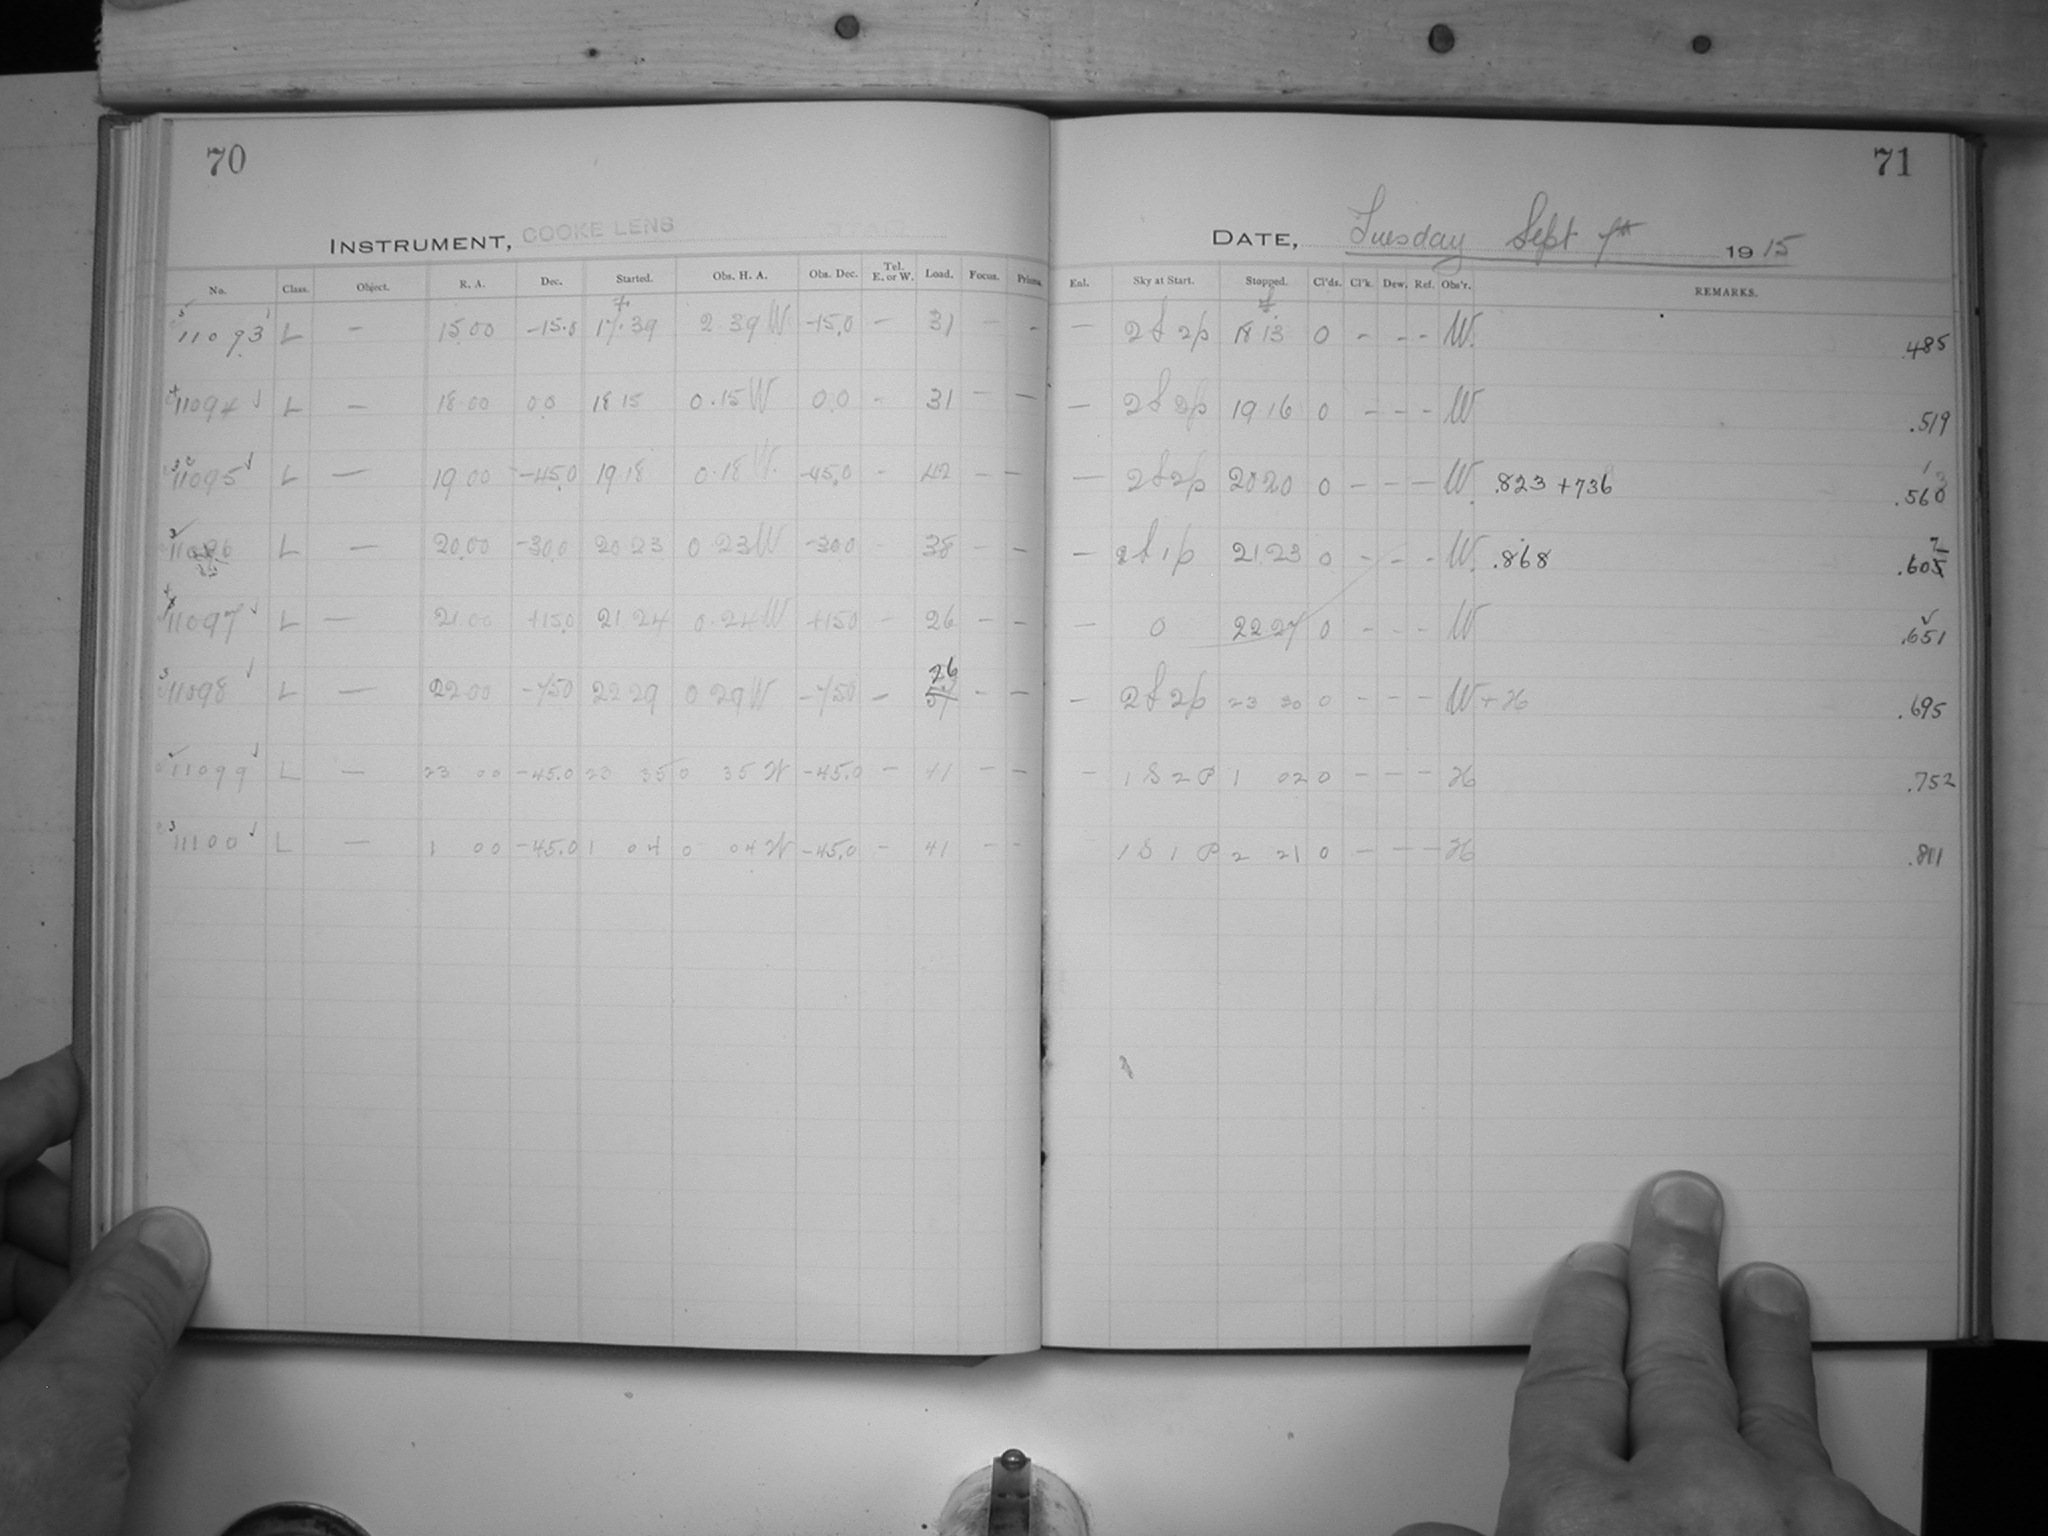 70
INSTRUMENT, COOKE LENS
No. Class. Object. R. A. Dec. Started. Obs. H. A. Obs. Dec. Tel. E. or W. Load. Focus. Prisms.
11093 L — 15.00 -15.0 17.39 2 39 W -15.0 — 31 — -
11094 L — 18 00 0.0 18 15 0.15 W 0.0 - 31 — —
11095 L — 19 00 -45.0 19.18 0.18 W. -45.0 - 42 — —
11096 L — 20.00 -30.0 20 23 0 23 W -30.0 - 38 - -
11097 L — 21.00 +15.0 21 24 0.24 W +15.0 - 26 - -
11098 L — 22 00 -75.0 22 29 0 29 W -75.0 — 26 - —
11099 L — 23 00 -45.0 23 35 0 35 W -45.0 — 41 - —
11100 L — 1 00 -45.0 1 04 0 04 W -45.0 - 41 - -
71
DATE, Tuesday Sept 7th 1915
Enl. Sky at Start. Stopped. Cl'ds. Cl'k. Dew. Ref. Obs'r. REMARKS.
— 2 S 2p 18 13 0 - - - W. .485
— 2 S 2p 19 16 0 - - - W .519
— 2 S 2p 20 20 0 - - - W. .823 +736 .560
— 2 S 1p 21.23 0 - - - W. .868 .605
— 0 22 27 0 - - - W .651
- 2 S 2p 23 30 0 - - - W + H .695
- 1 S 2 P 1 02 0 - - - H .752
1 S 1 P 2 21 0 — — — H .811